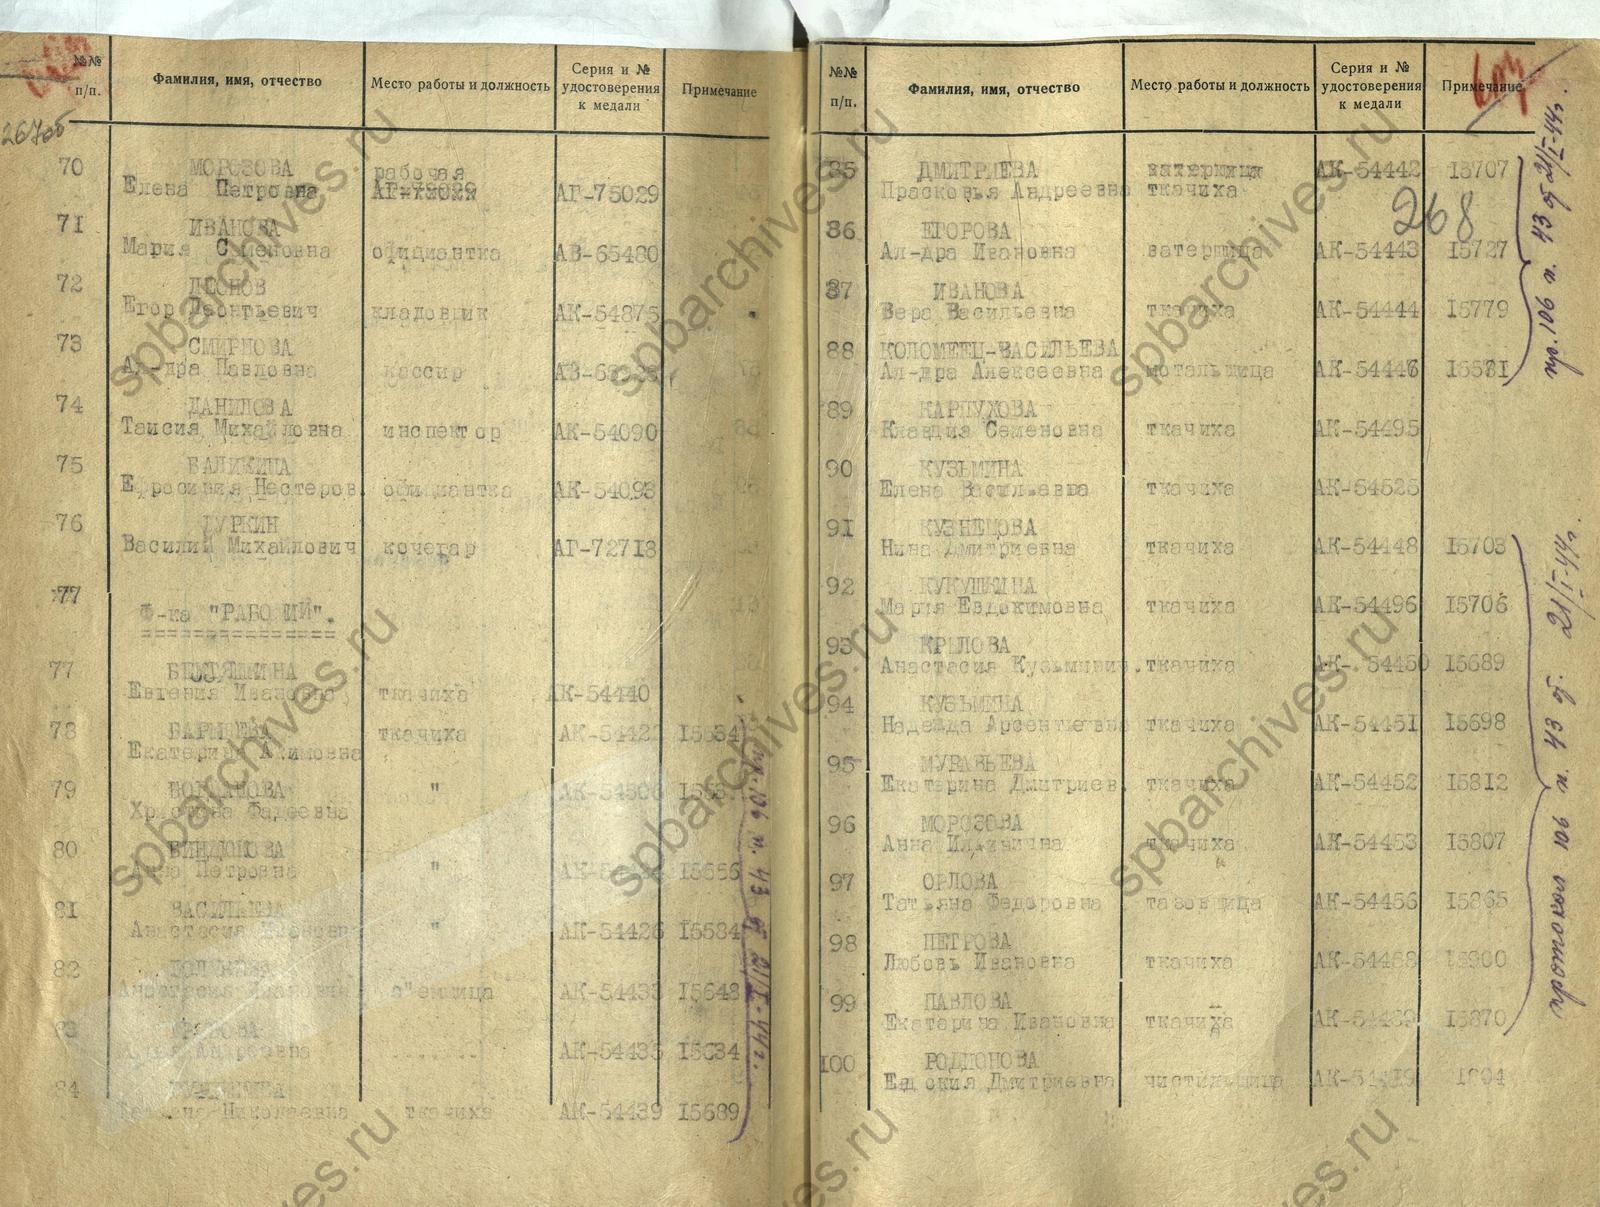 №№ п/п.
Фамилия, имя, отчество
Место работы и должность
Серия и № удостоверения к медали
Примечание
267об
70 МОРОЗОВА рабочая
Елена Петровна АГ-75029 АГ-75029
71 ИВАНОВА
Мария Семеновна официантка АВ-65480
72 ЛЕОНОВ
Егор Леонтьевич кладовщик АК-54875
73 СМИРНОВА
Ал-дра Павловна кассир
74 ДАНИЛОВА
Таисия Михайловна инспектор АК-54090
75 БАЛИКИНА
Ефросиния Нестеров. официантка АК-54093
76 ДУРКИН
Василий Михайлович кочегар АГ-72713
77
Ф-ка "РАБОЧИЙ".
===============
77
Евгения Ивановна, ткачиха АК-54440
78 ткачиха АК-54422 15634
Екатерина Акимовна
79 БОГДАНОВА " АК-54506
Христина Фадеевна
80 БИНДЮКОВА
Анна Петровна " 15656
81 ВАСИЛЬЕВА
Анастасия " АК-54426 15584
82
Анастасия Ивановна АК-54433 15648
83
Андреевна АК-54435 15634
84
Татьяна Николаевна ткачиха АК-54439 15689
пр.106 п. 43 от 21/I-44г.
№№ п/п.
Фамилия, имя, отчество
Место работы и должность
Серия и № удостоверения к медали
Примечание
268
85 ДМИТРИЕВА ватерщица АК-54442 15707
Прасковья Андреевна ткачиха
86 ЕГОРОВА
Ал-дра Ивановна ватерщица АК-54443 15727
87 ИВАНОВА
Вера Васильевна ткачиха АК-54444 15779
88 КОЛОМЕЕЦ-ВАСИЛЬЕВА
Ал-дра Алексеевна мотальщица АК-54446
89 КАРПУХОВА
Клавдия Семеновна ткачиха АК-54495
90 КУЗЬМИНА
Елена Васильевна ткачиха АК-54525
91 КУЗНЕЦОВА
Нина Дмитриевна ткачиха АК-54448 15703
92 КУКУШКИНА
Мария Евдокимовна ткачиха АК-54496 15706
93 КРЫЛОВА
Анастасия Кузьминич. ткачиха АК-54450 15689
94 КУЗЬМИНА
Надежда Арсентьевна ткачиха АК-54451 15698
95 МУРАВЬЕВА
Екатерина Дмитриев. ткачиха АК-54452 15812
96 МОРОЗОВА
Анна Ильинична ткачиха АК-54453 15807
97 ОРЛОВА
Татьяна Федоровна тазовщица АК-54456 15865
98 ПЕТРОВА
Любовь Ивановна ткачиха АК-54488
99 ПАВЛОВА
Екатерина Ивановна ткачиха АК-54489 15870
100 РОДИОНОВА
Евдокия Дмитриевна чистильщица
пр.106 п. 43 от 21/I-44г.
протокол 106 п. 43 от. 21/I-44г.
spbarchives.ru
spbarchives.ru
spbarchives.ru
spbarchives.ru
spbarchives.ru
spbarchives.ru